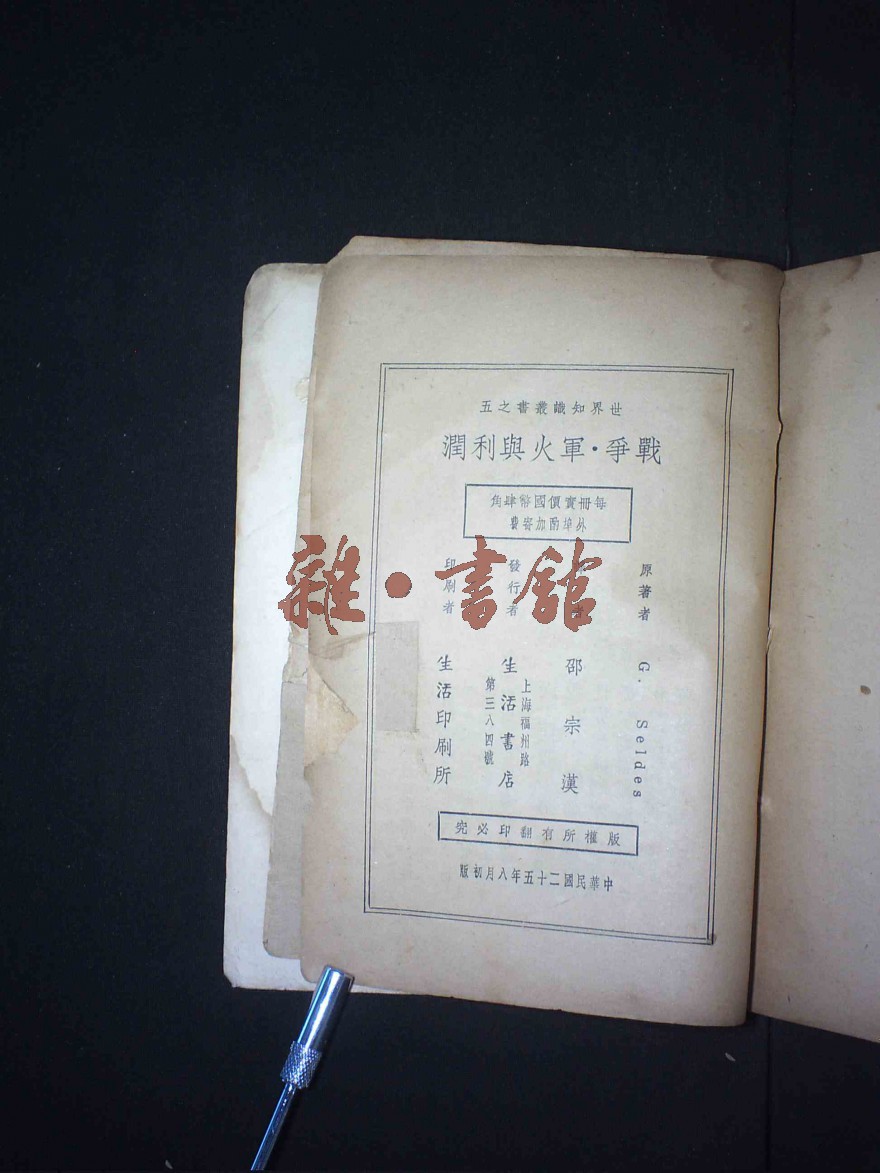 世界知識叢書之五
戰爭・軍火與利潤
每冊實價國幣肆角
外埠酌加寄費
原著者 G. Seldes
者 邵宗漢
發行者 生活書店
上海福州路
第三八四號
印刷者 生活印刷所
版權所有翻印必究
中華民國二十五年八月初版
雜・書館